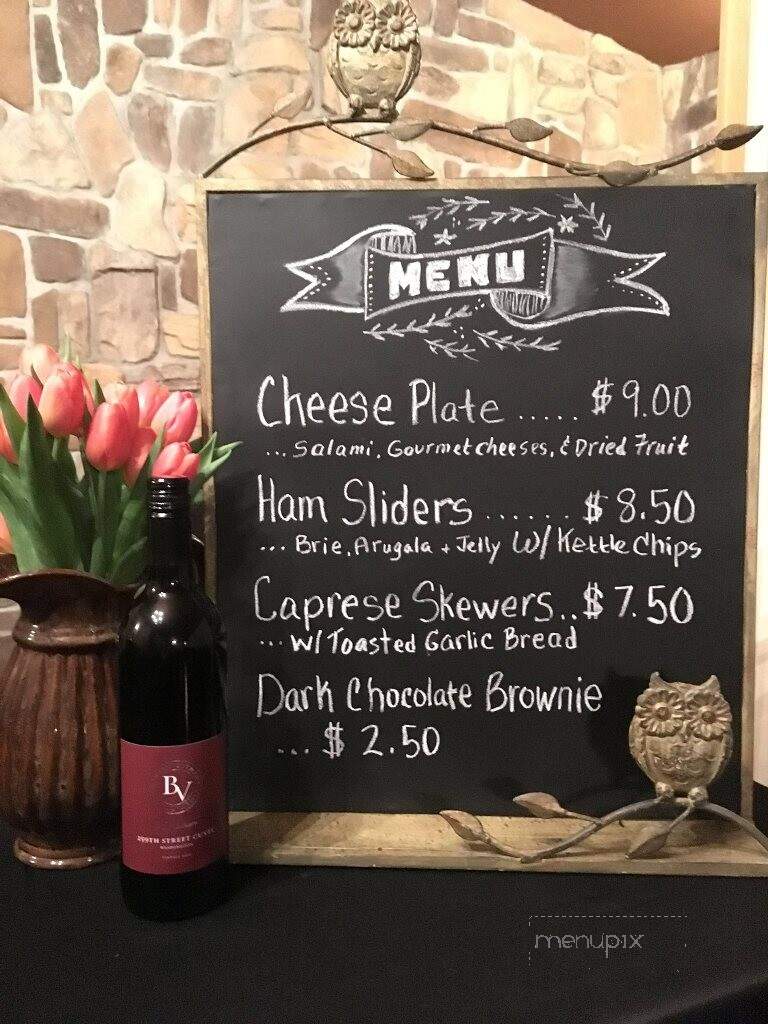 MENU
Cheese Plate ..... $9.00
... Salami, Gourmet cheeses, & Dried Fruit
Ham Sliders ...... $8.50
... Brie, Arugala + Jelly W/ Kettle Chips
Caprese Skewers.. $7.50
... W/ Toasted Garlic Bread
Dark Chocolate Brownie
... $2.50
BV
STREET
WASHINGTON
menupix